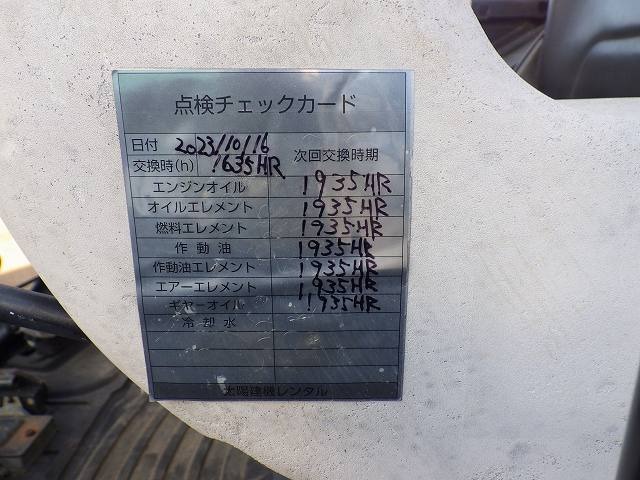 点検チェックカード
日付 2023/10/16
交換時(h) 1635HR 次回交換時期
エンジンオイル 1935HR
オイルエレメント 1935HR
燃料エレメント 1935HR
作動油 1935HR
作動油エレメント 1935HR
エアーエレメント 1935HR
ギヤーオイル 1935HR
冷却水
太陽建機レンタル